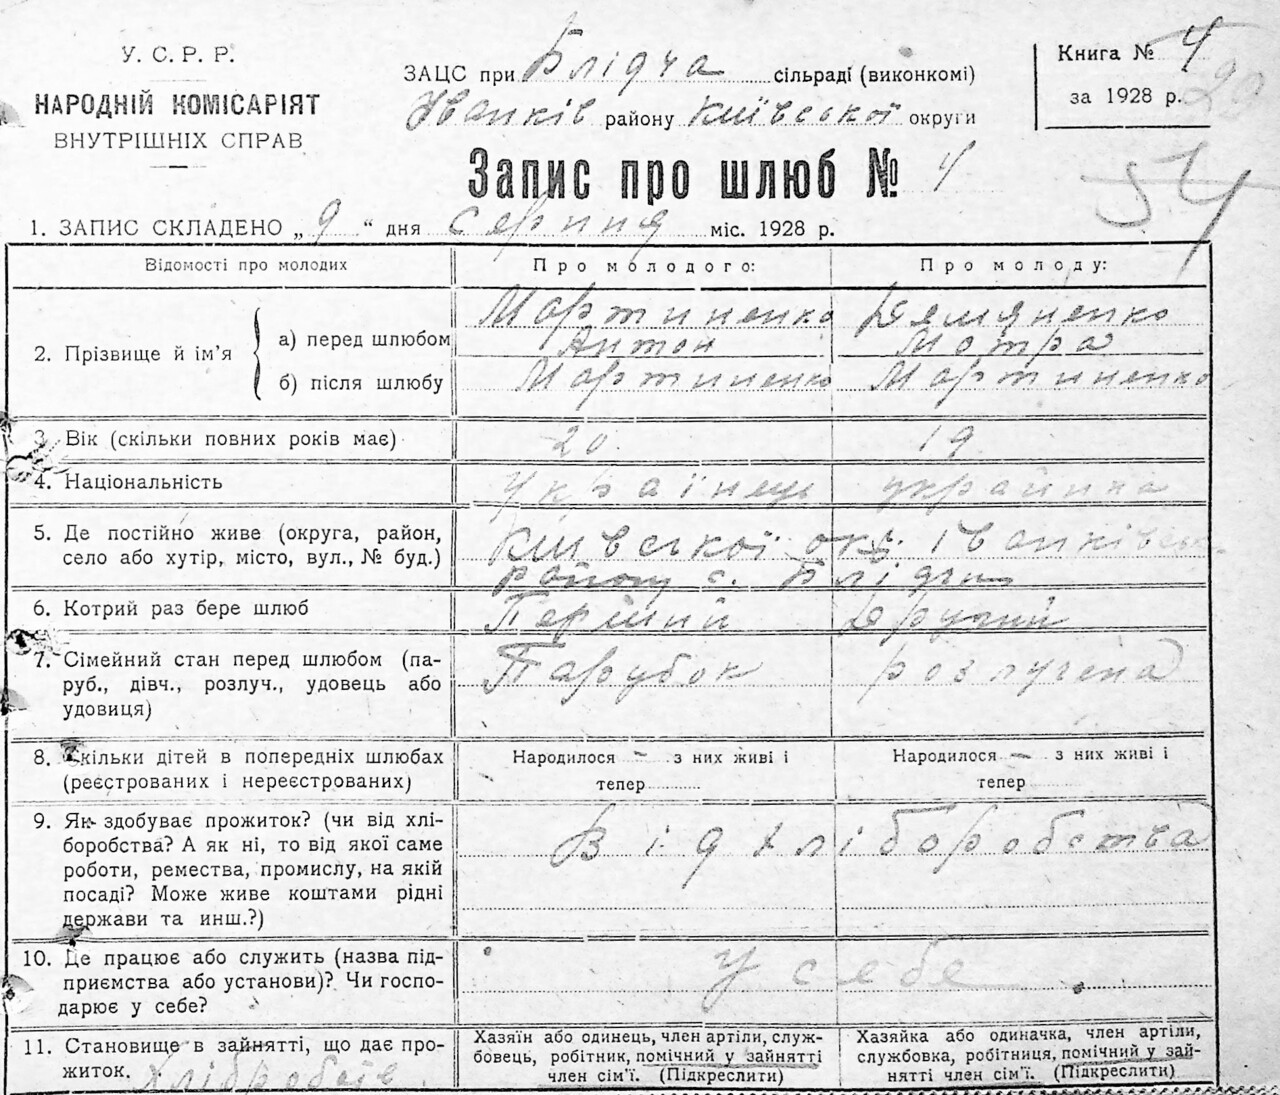 У. С. Р. Р.
НАРОДНІЙ КОМІСАРІЯТ
ВНУТРІШНІХ СПРАВ
ЗАЦС при Блідча сільраді (виконкомі)
Іванків району Київської округи
Книга № 4
за 1928 р. 29
Запис про шлюб № 4
54
1. ЗАПИС СКЛАДЕНО „ 9 “ дня серпня міс. 1928 р.
Відомості про молодих
Про молодого:
Про молоду:
2. Прізвище й ім’я
а) перед шлюбом
Мартиненко
Антон
Демяненко
Мотра
б) після шлюбу
Мартиненко
Мартиненко
3. Вік (скільки повних років має)
20
19
4. Національність
Українець
украинка
5. Де постійно живе (округа, район,
село або хутір, місто, вул., № буд.)
Київської окр. Іванківськ
району с. Блідчи
6. Котрий раз бере шлюб
Перший
Другий
7. Сімейний стан перед шлюбом (па-
руб., дівч., розлуч., удовець або
удовиця)
Парубок
розлучена
8. Скільки дітей в попередніх шлюбах
(реєстрованих і нереєстрованих)
Народилося – з них живі і
тепер
Народилося – з них живі і
тепер
9. Як здобуває прожиток? (чи від хлі-
боробства? А як ні, то від якої саме
роботи, ремества, промислу, на якій
посаді? Може живе коштами рідні
держави та инш.?)
Від хліборобства
10. Де працює або служить (назва під-
приємства або установи)? Чи госпо-
дарює у себе?
У себе
11. Становище в зайнятті, що дає про-
житок. Хлібробсів.
Хазяїн або одинець, член артілі, служ-
бовець, робітник, помічний у зайнятті
член сім’ї. (Підкреслити)
Хазяйка або одиначка, член артіли,
службовка, робітниця, помічний у зай-
нятті член сім’ї. (Підкреслити)